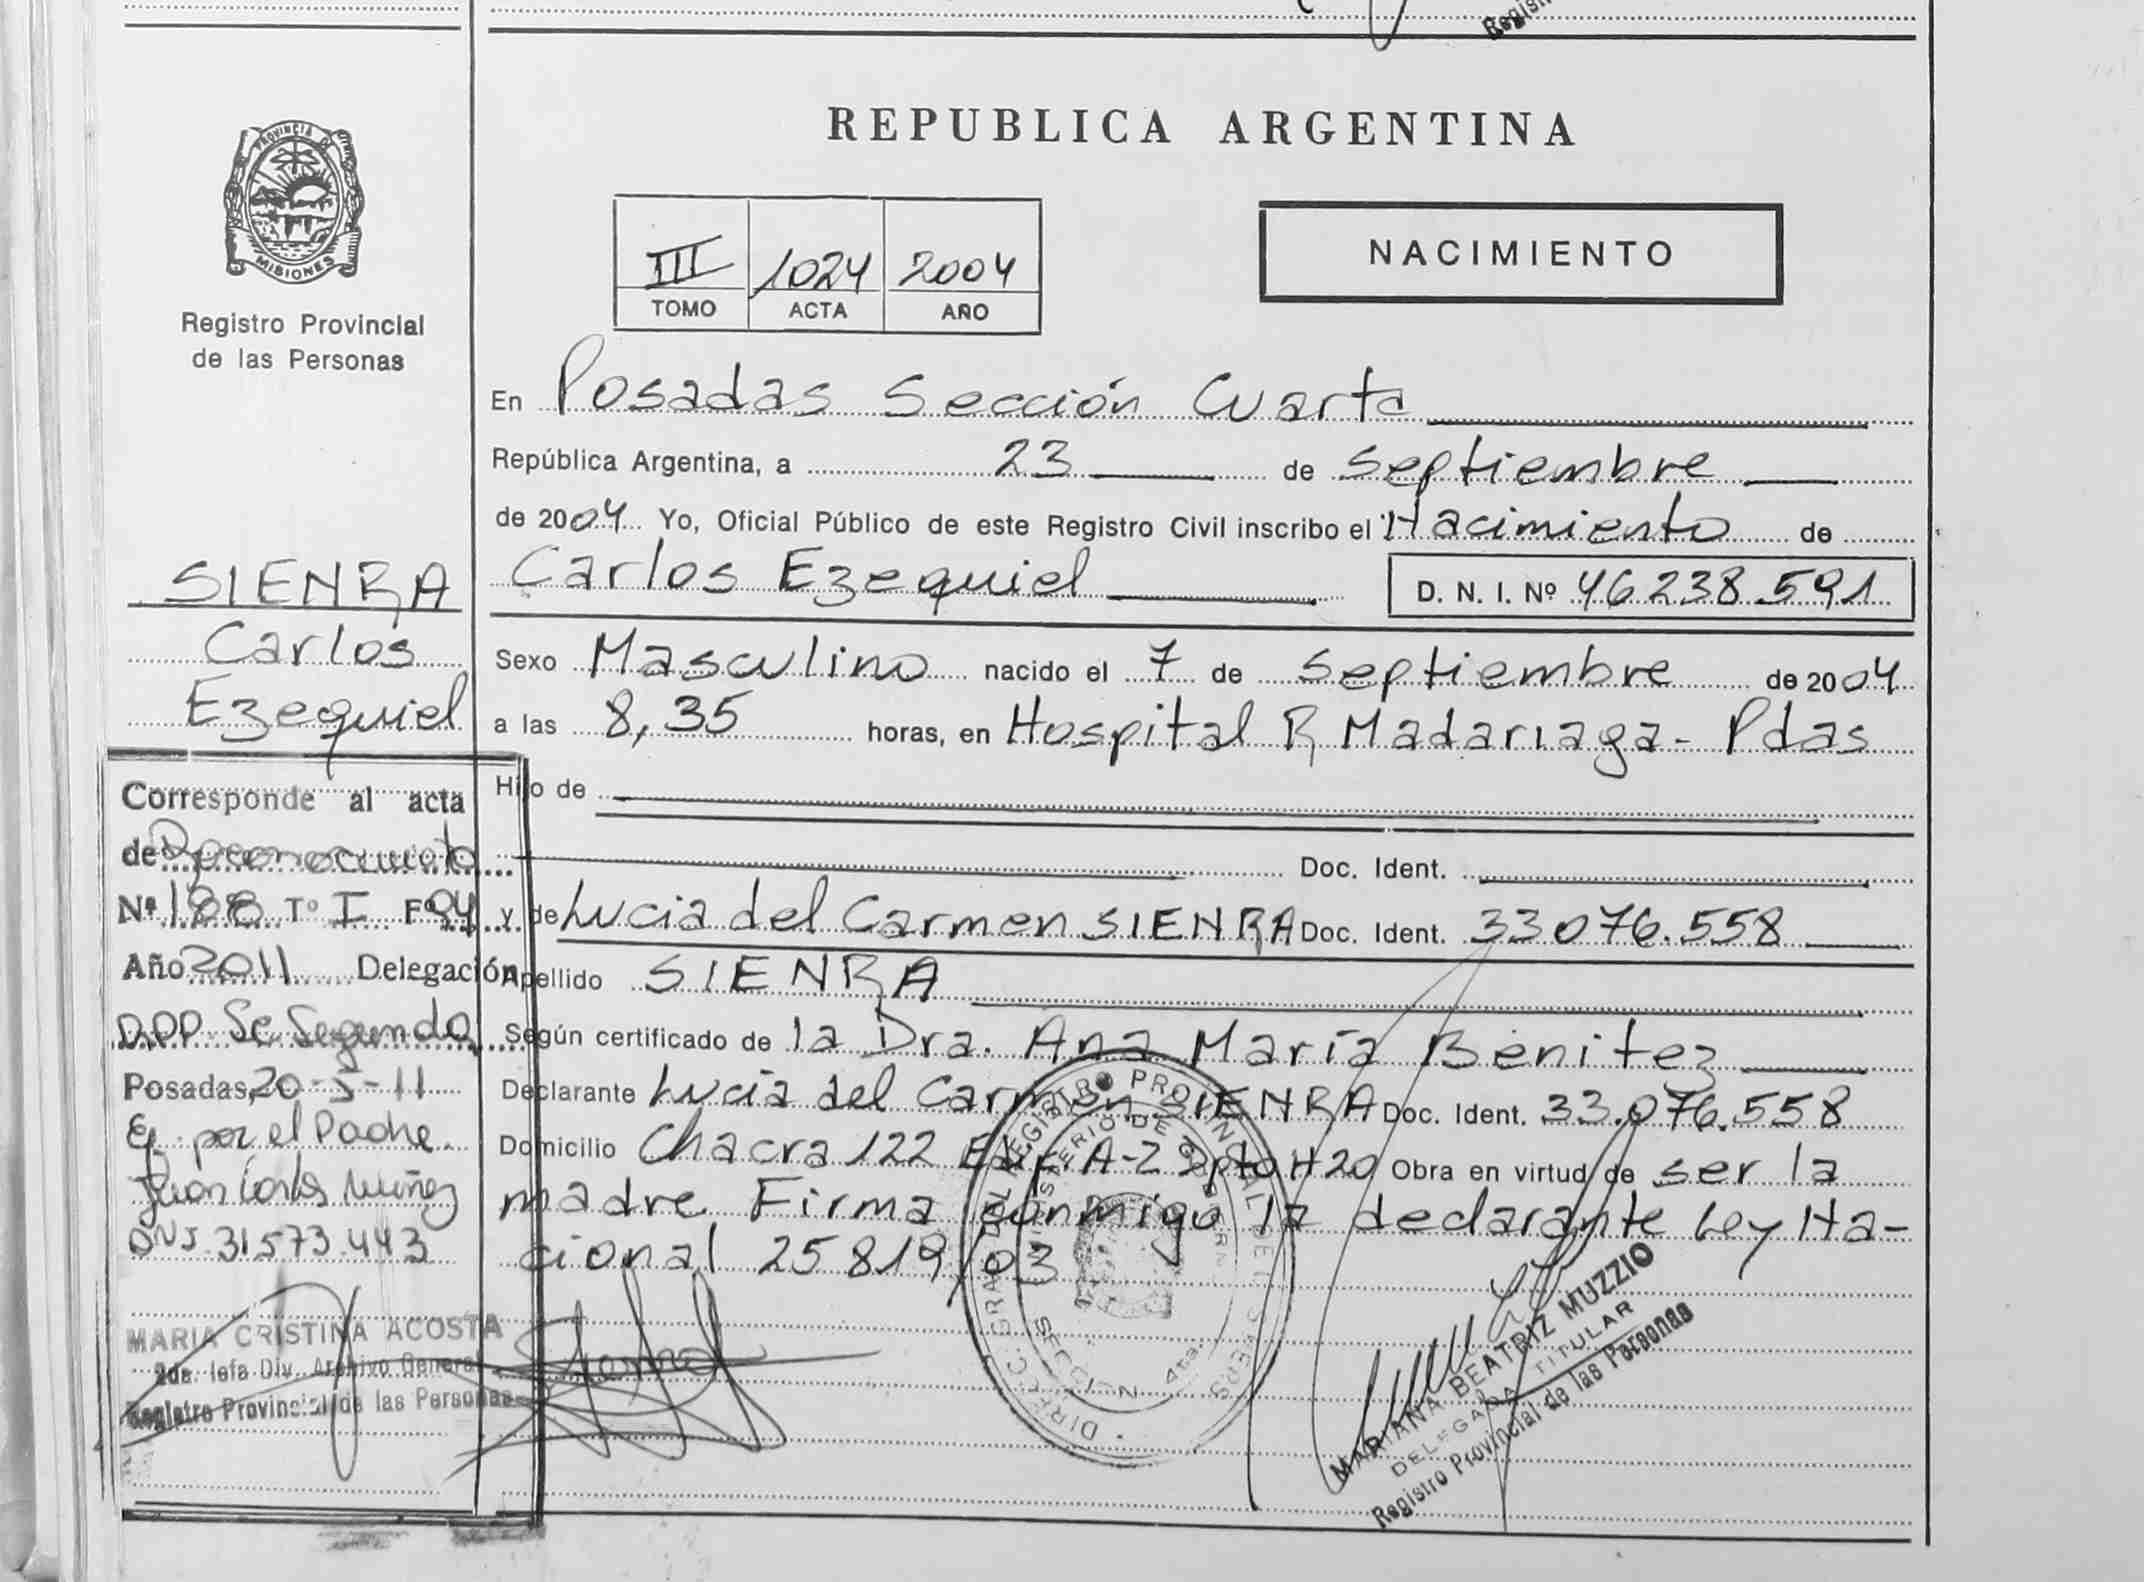 REPUBLICA ARGENTINA
PROVINCIA DE
MISIONES
Registro Provincial
de las Personas
III 1024 2004
TOMO ACTA AÑO
NACIMIENTO
En Posadas Sección Cuarta
República Argentina, a 23 de Septiembre
de 2004 Yo, Oficial Público de este Registro Civil inscribo el Nacimiento de
Carlos Ezequiel D. N. I. Nº 46238.591
SIENRA
Carlos
Ezequiel
Sexo Masculino nacido el 7 de Septiembre de 2004
a las 8,35 horas, en Hospital R Madariaga - Pdas
Hijo de
Doc. Ident.
y de Lucia del Carmen SIENRA Doc. Ident. 33076.558
Apellido SIENRA
Según certificado de la Dra. Ana María Benitez
Declarante Lucia del Carmen SIENRA Doc. Ident. 33.076.558
Domicilio Chacra 122 Edif. A-2 Dpto H20 Obra en virtud de ser la
madre Firma conmigo la declarante Ley Na-
cional 25819/03
Corresponde al acta
de Reconocimiento
Nº 188 Tº I Fº 94
Año 2011 Delegación
Se Segunda
Posadas, 20-5-11
por el Padre
Juan Carlos Nuñez
DNI. 31.573.443
MARIA CRISTINA ACOSTA
2da. Jefa Div. Archivo General
Registro Provincial de las Personas
MARIANA BEATRIZ MUZZIO
DELEGADA TITULAR
Registro Provincial de las Personas